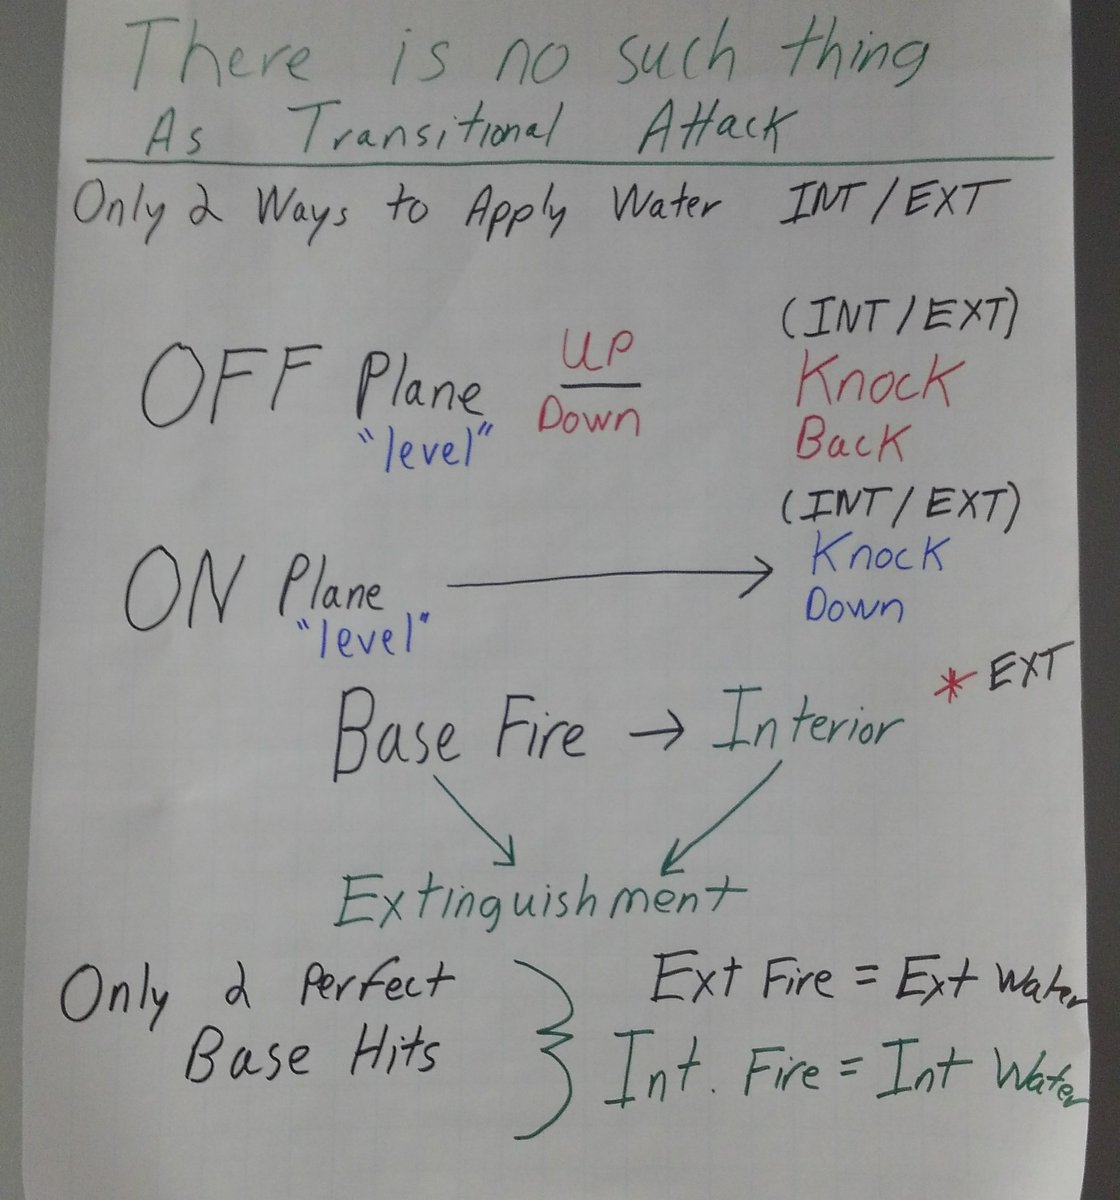 There is no such thing
As Transitional Attack
Only 2 Ways to Apply Water INT / EXT
(INT / EXT)
OFF Plane UP Knock
"level" Down Back
(INT / EXT)
ON Plane → Knock
"level" Down
* EXT
Base Fire → Interior
Extinguishment
Only 2 Perfect Ext Fire = Ext Water
Base Hits Int. Fire = Int Water